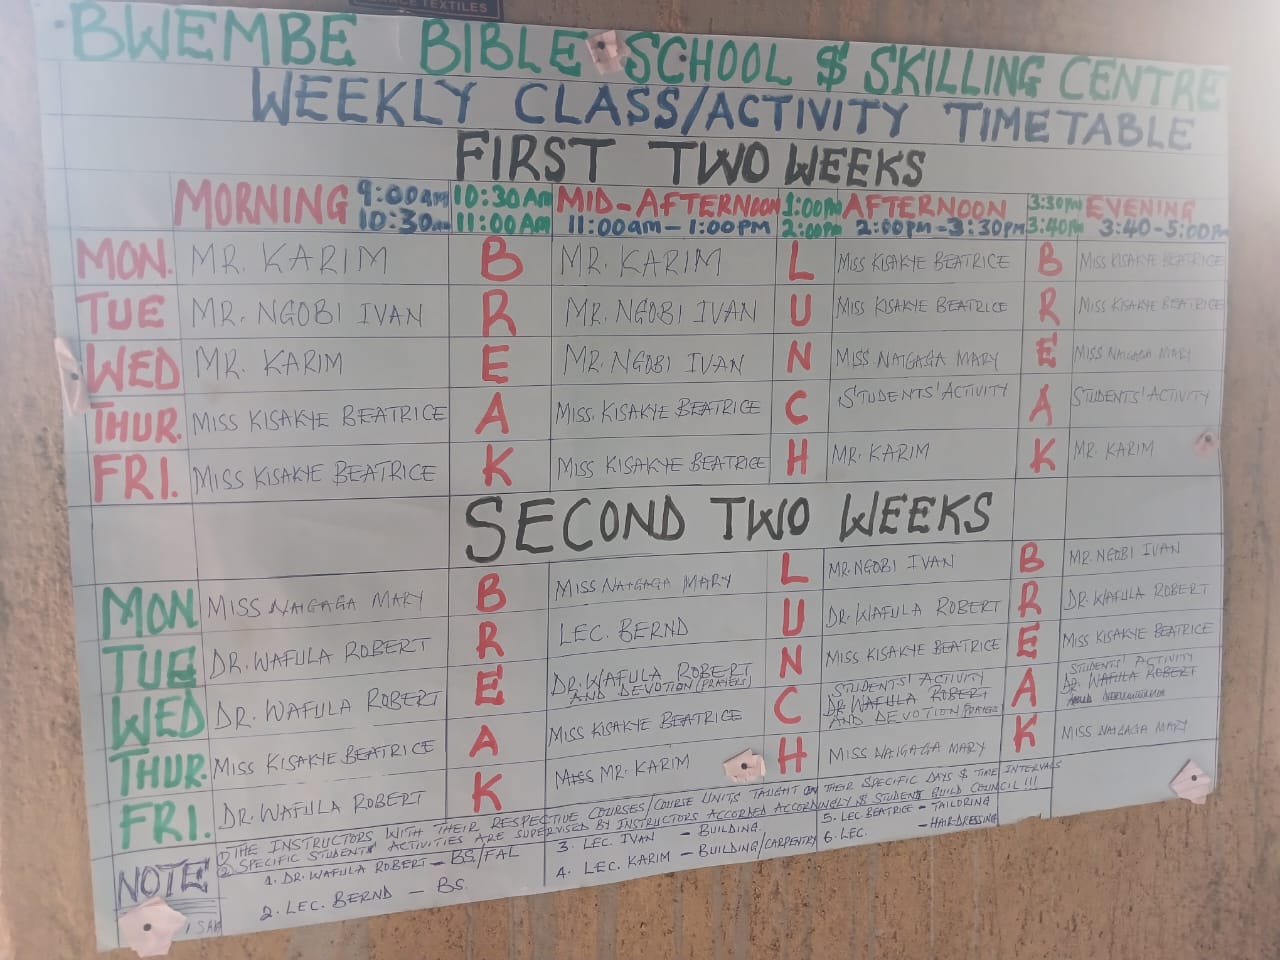 TEXTILES
BWEMBE BIBLE SCHOOL $ SKILLING CENTRE
WEEKLY CLASS/ACTIVITY TIMETABLE
FIRST TWO WEEKS
MORNING 9:00am 10:30am 10:30Am 11:00Am MID-AFTERNOON 11:00am-1:00PM 1:00Pm 2:00Pm AFTERNOON 2:00pm-3:30pm 3:30pm 3:40pm EVENING 3:40-5:00Pm
MON. MR. KARIM B MR. KARIM L MISS KISAKYE BEATRICE B MISS KISAKYE BEATRICE
TUE MR. NGOBI IVAN R MR. NGOBI IVAN U MISS KISAKYE BEATRICE R MISS KISAKYE BEATRICE
WED MR. KARIM E MR. NGOBI IVAN N MISS NAIGAGA MARY E MISS NAIGAGA MARY
THUR. MISS KISAKYE BEATRICE A MISS. KISAKYE BEATRICE C STUDENTS' ACTIVITY A STUDENTS' ACTIVITY
FRI. MISS KISAKYE BEATRICE K MISS KISAKYE BEATRICE H MR. KARIM K MR. KARIM
SECOND TWO WEEKS
MON MISS NAIGAGA MARY B MISS NAIGAGA MARY L MR. NGOBI IVAN B MR. NGOBI IVAN
TUE DR. WAFULA ROBERT R LEC. BERND U DR. WAFULA ROBERT R DR. WAFULA ROBERT
WED DR. WAFULA ROBERT E DR. WAFULA ROBERT AND DEVOTION (PRAYERS) N MISS KISAKYE BEATRICE E MISS KISAKYE BEATRICE
THUR. MISS KISAKYE BEATRICE A MISS KISAKYE BEATRICE C STUDENTS' ACTIVITY DR. WAFULA ROBERT AND DEVOTION (PRAYERS) A STUDENTS' ACTIVITY DR. WAFULA ROBERT
FRI. DR. WAFULA ROBERT K MISS MR. KARIM H MISS NAIGAGA MARY K MISS NAIGAGA MARY
NOTE
1) THE INSTRUCTORS WITH THEIR RESPECTIVE COURSES/COURSE UNITS TAUGHT ON THEIR SPECIFIC DAYS $ TIME INTERVALS
2) SPECIFIC STUDENTS' ACTIVITIES ARE SUPERVISED BY INSTRUCTORS ACCORDED ACCORDINGLY $ STUDENT GUILD COUNCIL !!!
1. DR. WAFULA ROBERT - BS/FAL
2. LEC. BERND - BS.
3. LEC. IVAN - BUILDING
4. LEC. KARIM - BUILDING/CARPENTRY
5. LEC. BEATRICE - TAILORING
6. LEC. - HAIR-DRESSING